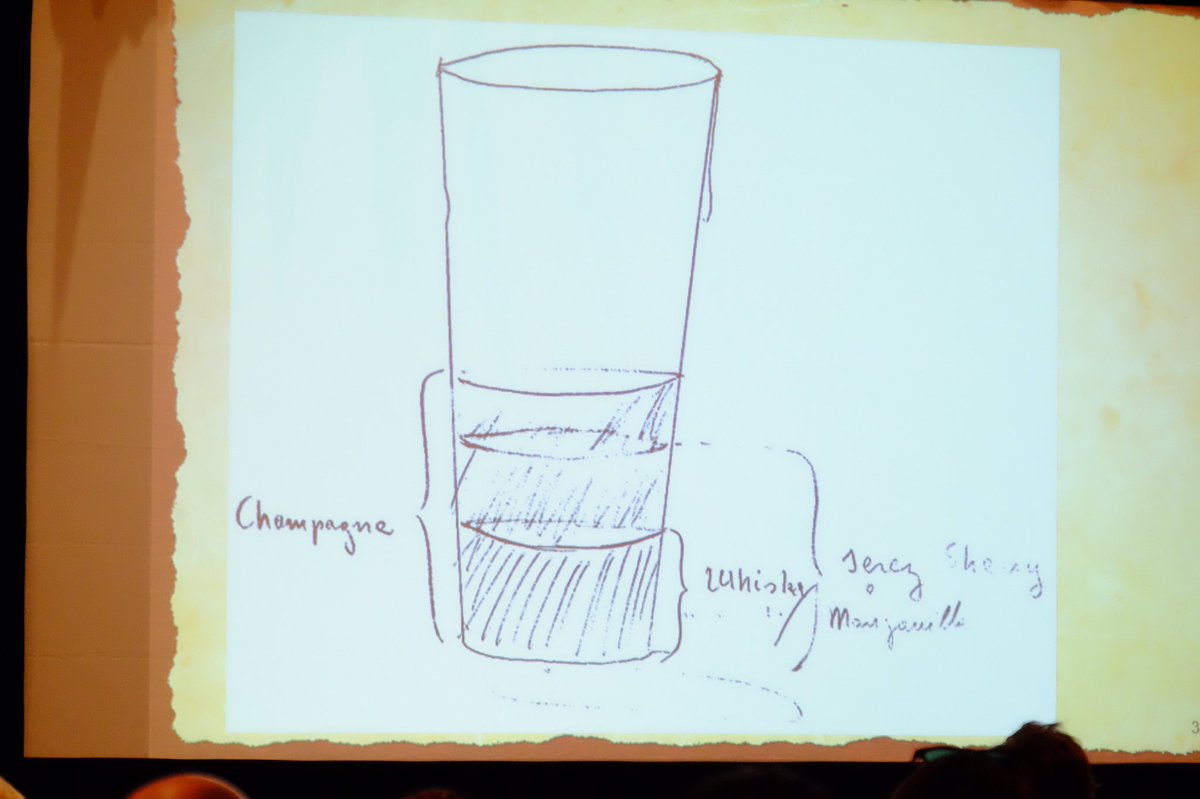 Champagne
Whisky
Jerez Sherry
o
Manzanilla
3